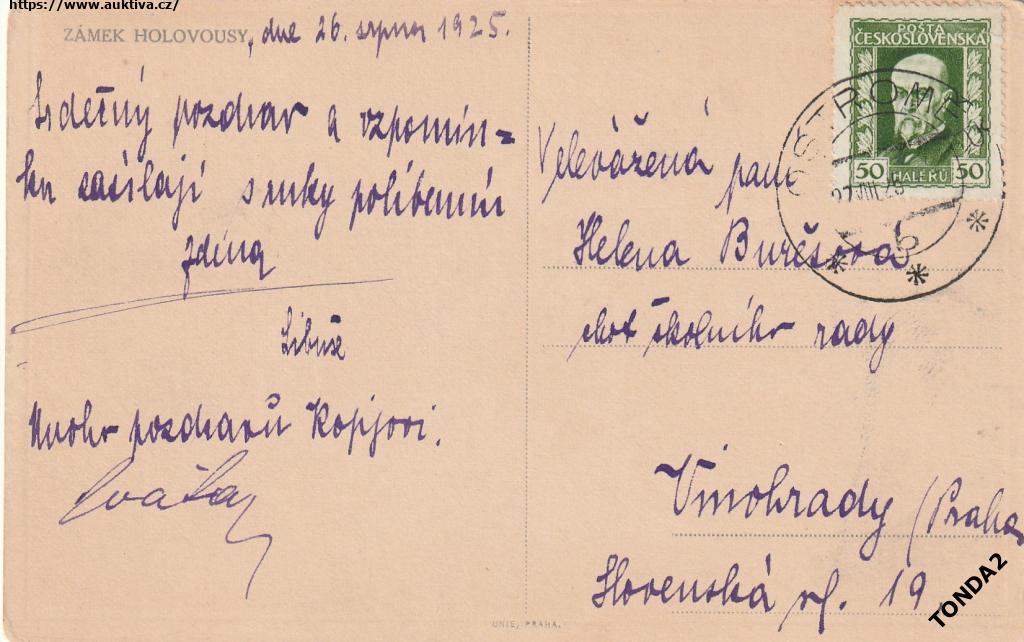 https://www.auktiva.cz/
ZÁMEK HOLOVOUSY, dne 26. srpna 1925.
Srdečný pozdrav a vzpomín=
ku zasílají s ruky políbením
Zdina
Libuše
Mnoho pozdravů
POŠTA
ČESKOSLOVENSKÁ
50 HALÉŘŮ 50
OSTROMĚŘ
27.VIII.25
Velevážená paní
Helena Burešová
choť školního rady
Vinohrady (Praha
Slovenská ul. 19.
UNIE, PRAHA.
TONDA2